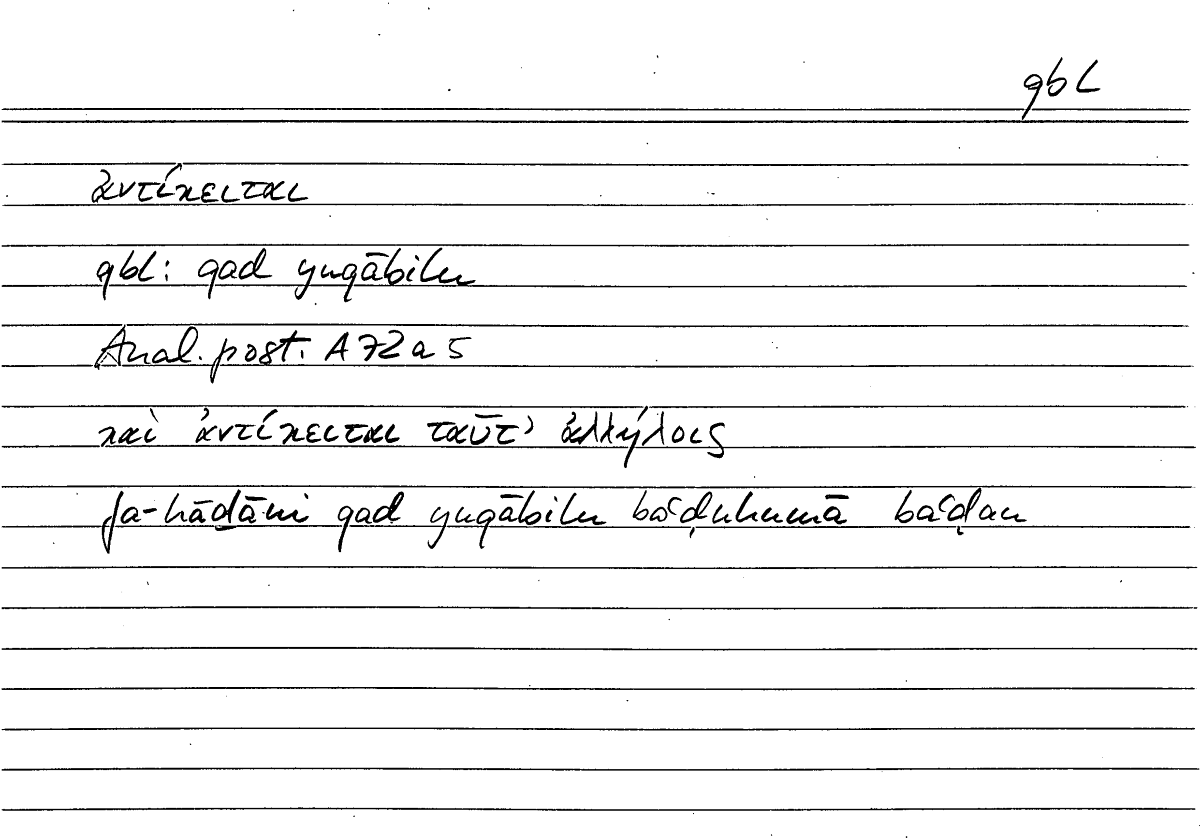 qbl
ἀντίκειται
qbl: qad yuqābilu
Anal. post. A 72 a 5
καὶ ἀντίκειται ταῦτ᾽ ἀλλήλοις
fa-hāḏāni qad yuqābilu baʿḍuhumā baʿḍan